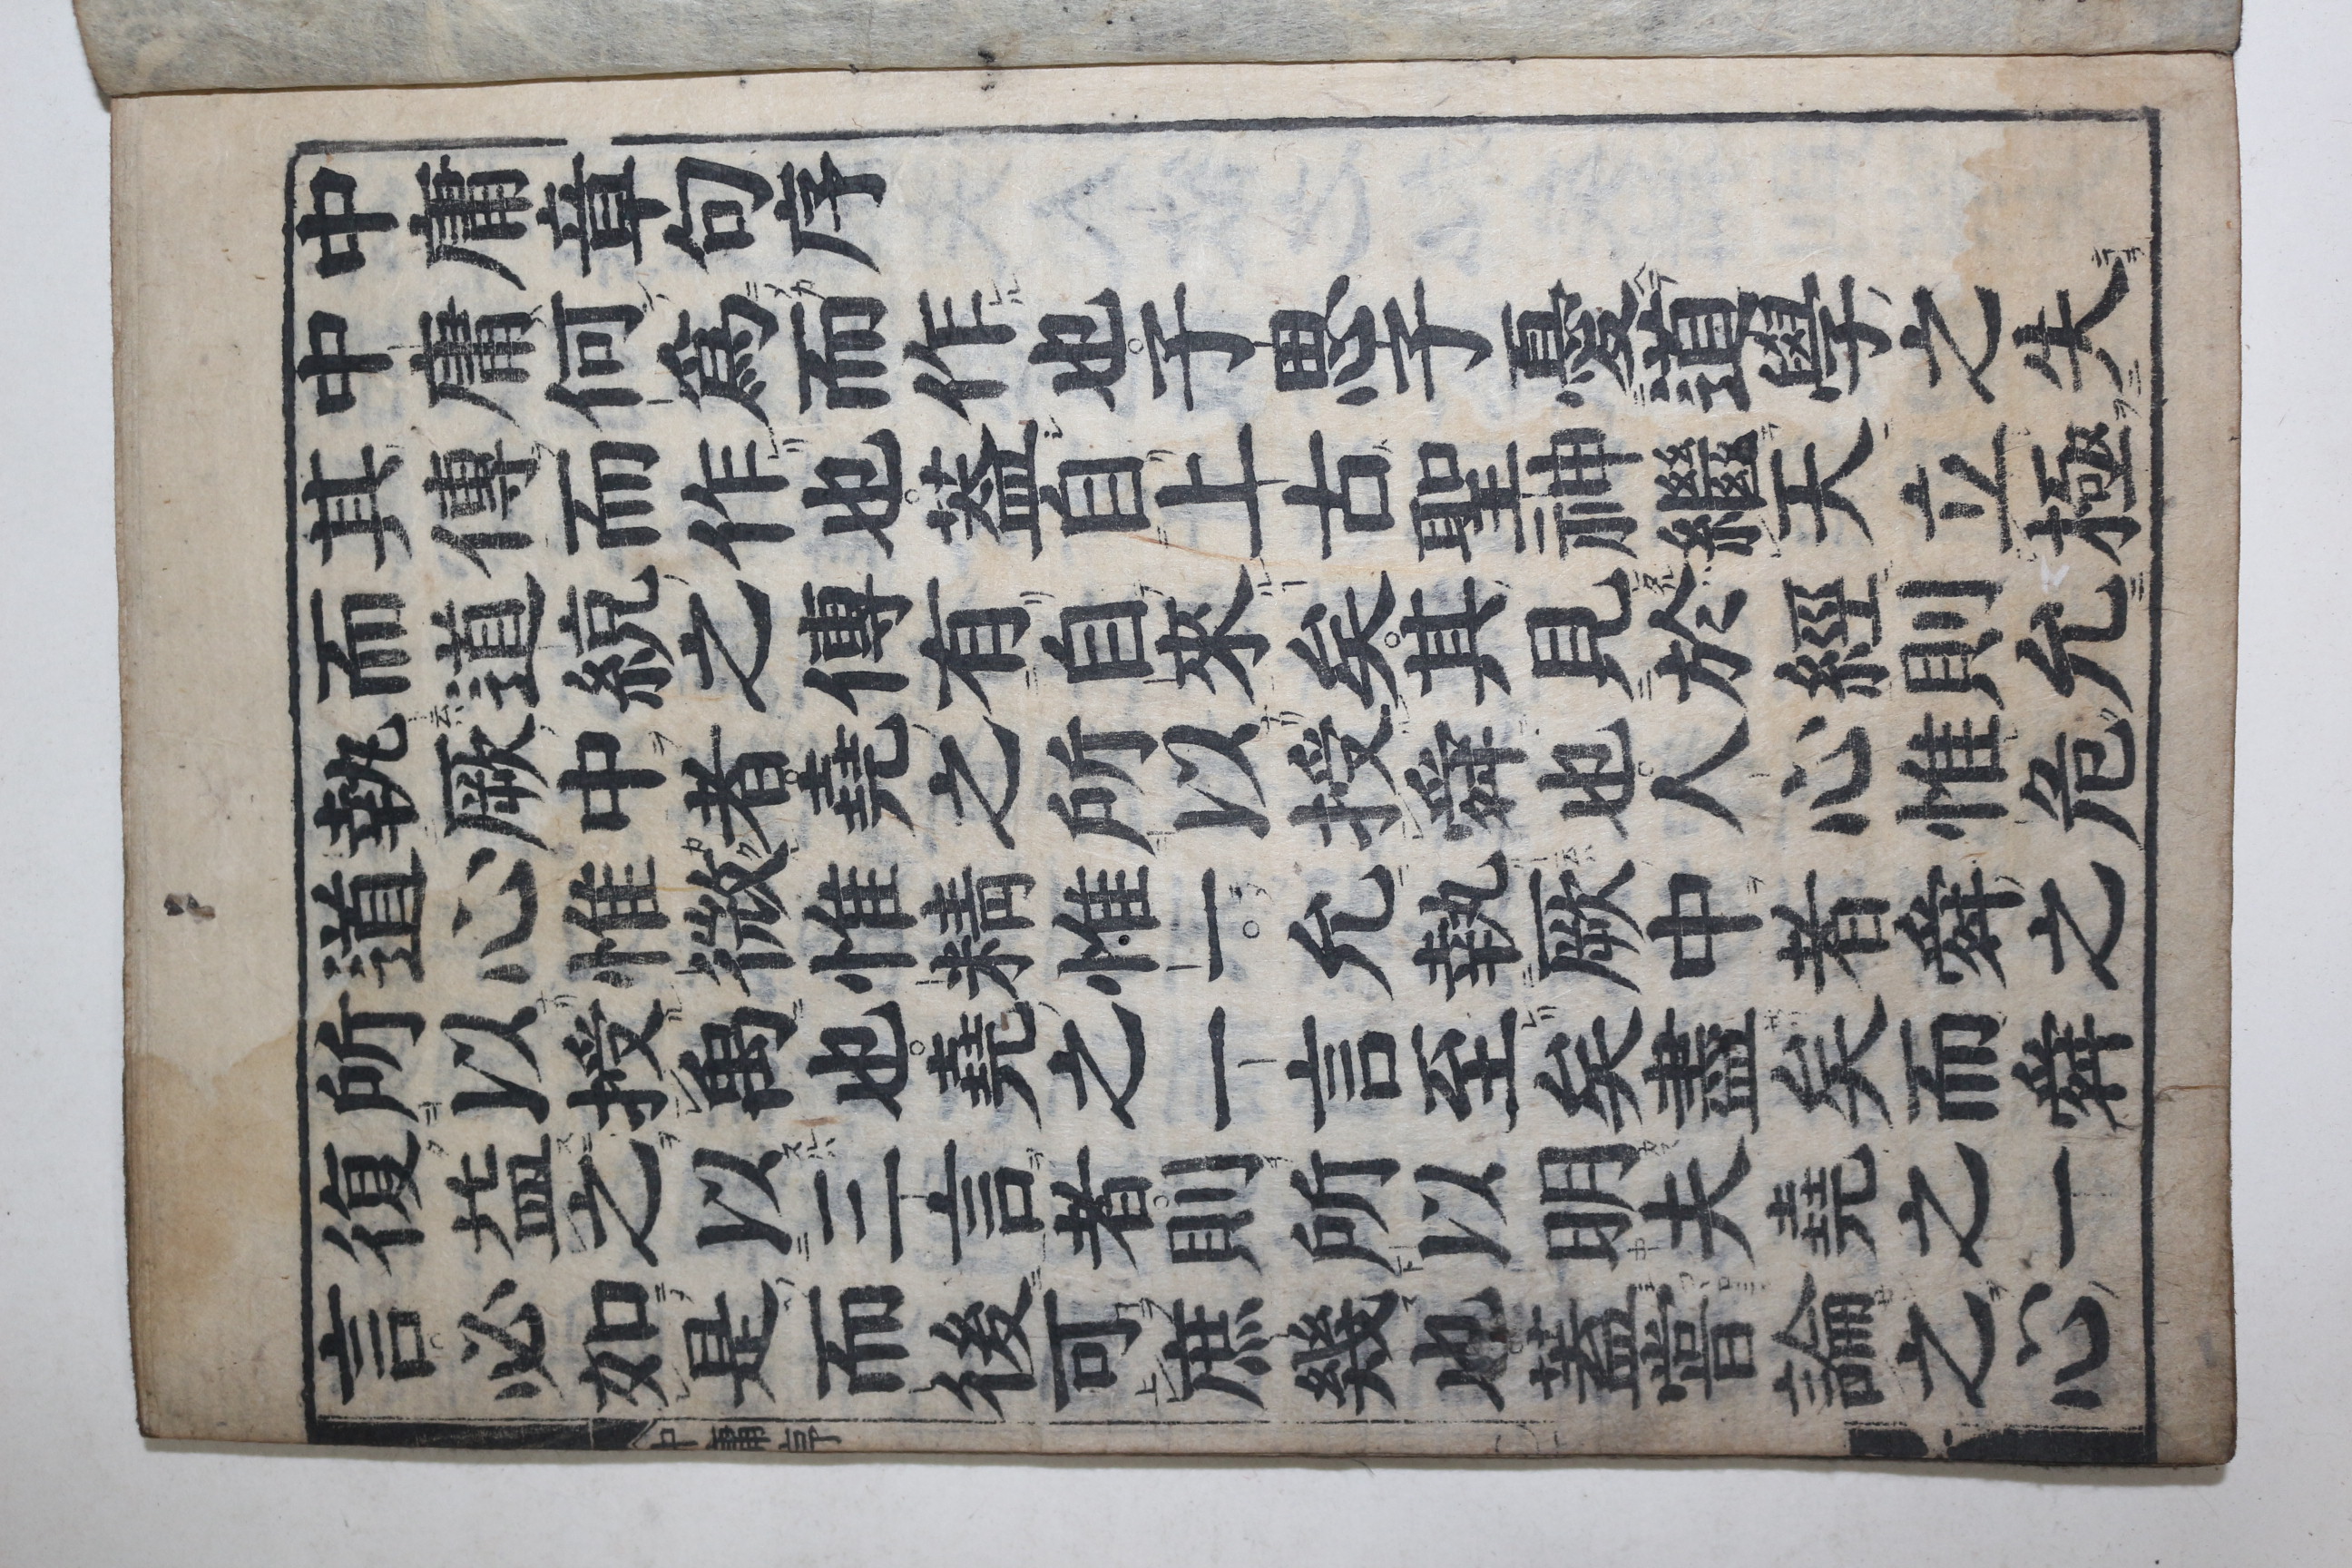 中庸章句序
中庸何爲而作也。子思子憂道學之失
其傳而作也。蓋自上古聖神繼天立極
而道統之傳有自來矣。其見於經則允
執厥中者。堯之所以授舜也。人心惟危
道心惟微惟精惟一。允執厥中者舜之
所以授禹也。堯之一言至矣盡矣而舜
復益之以三言者。則所以明夫堯之一
言。必如是而後可庶幾也。蓋嘗論之心
中庸序